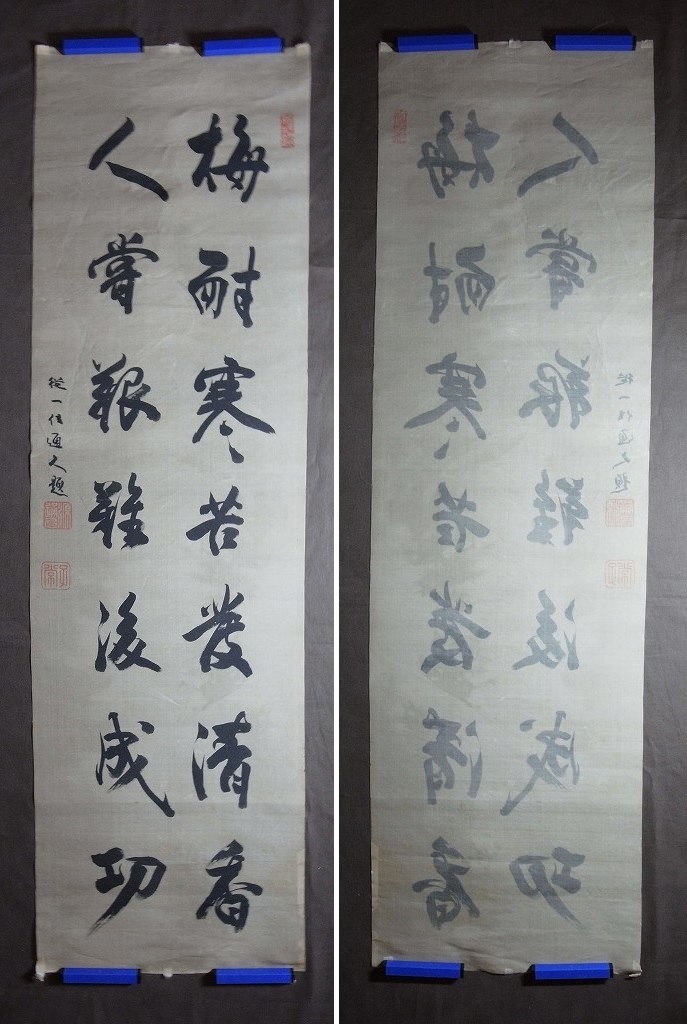 梅耐寒苦發清香
人嘗艱難後成功
從一位通久題